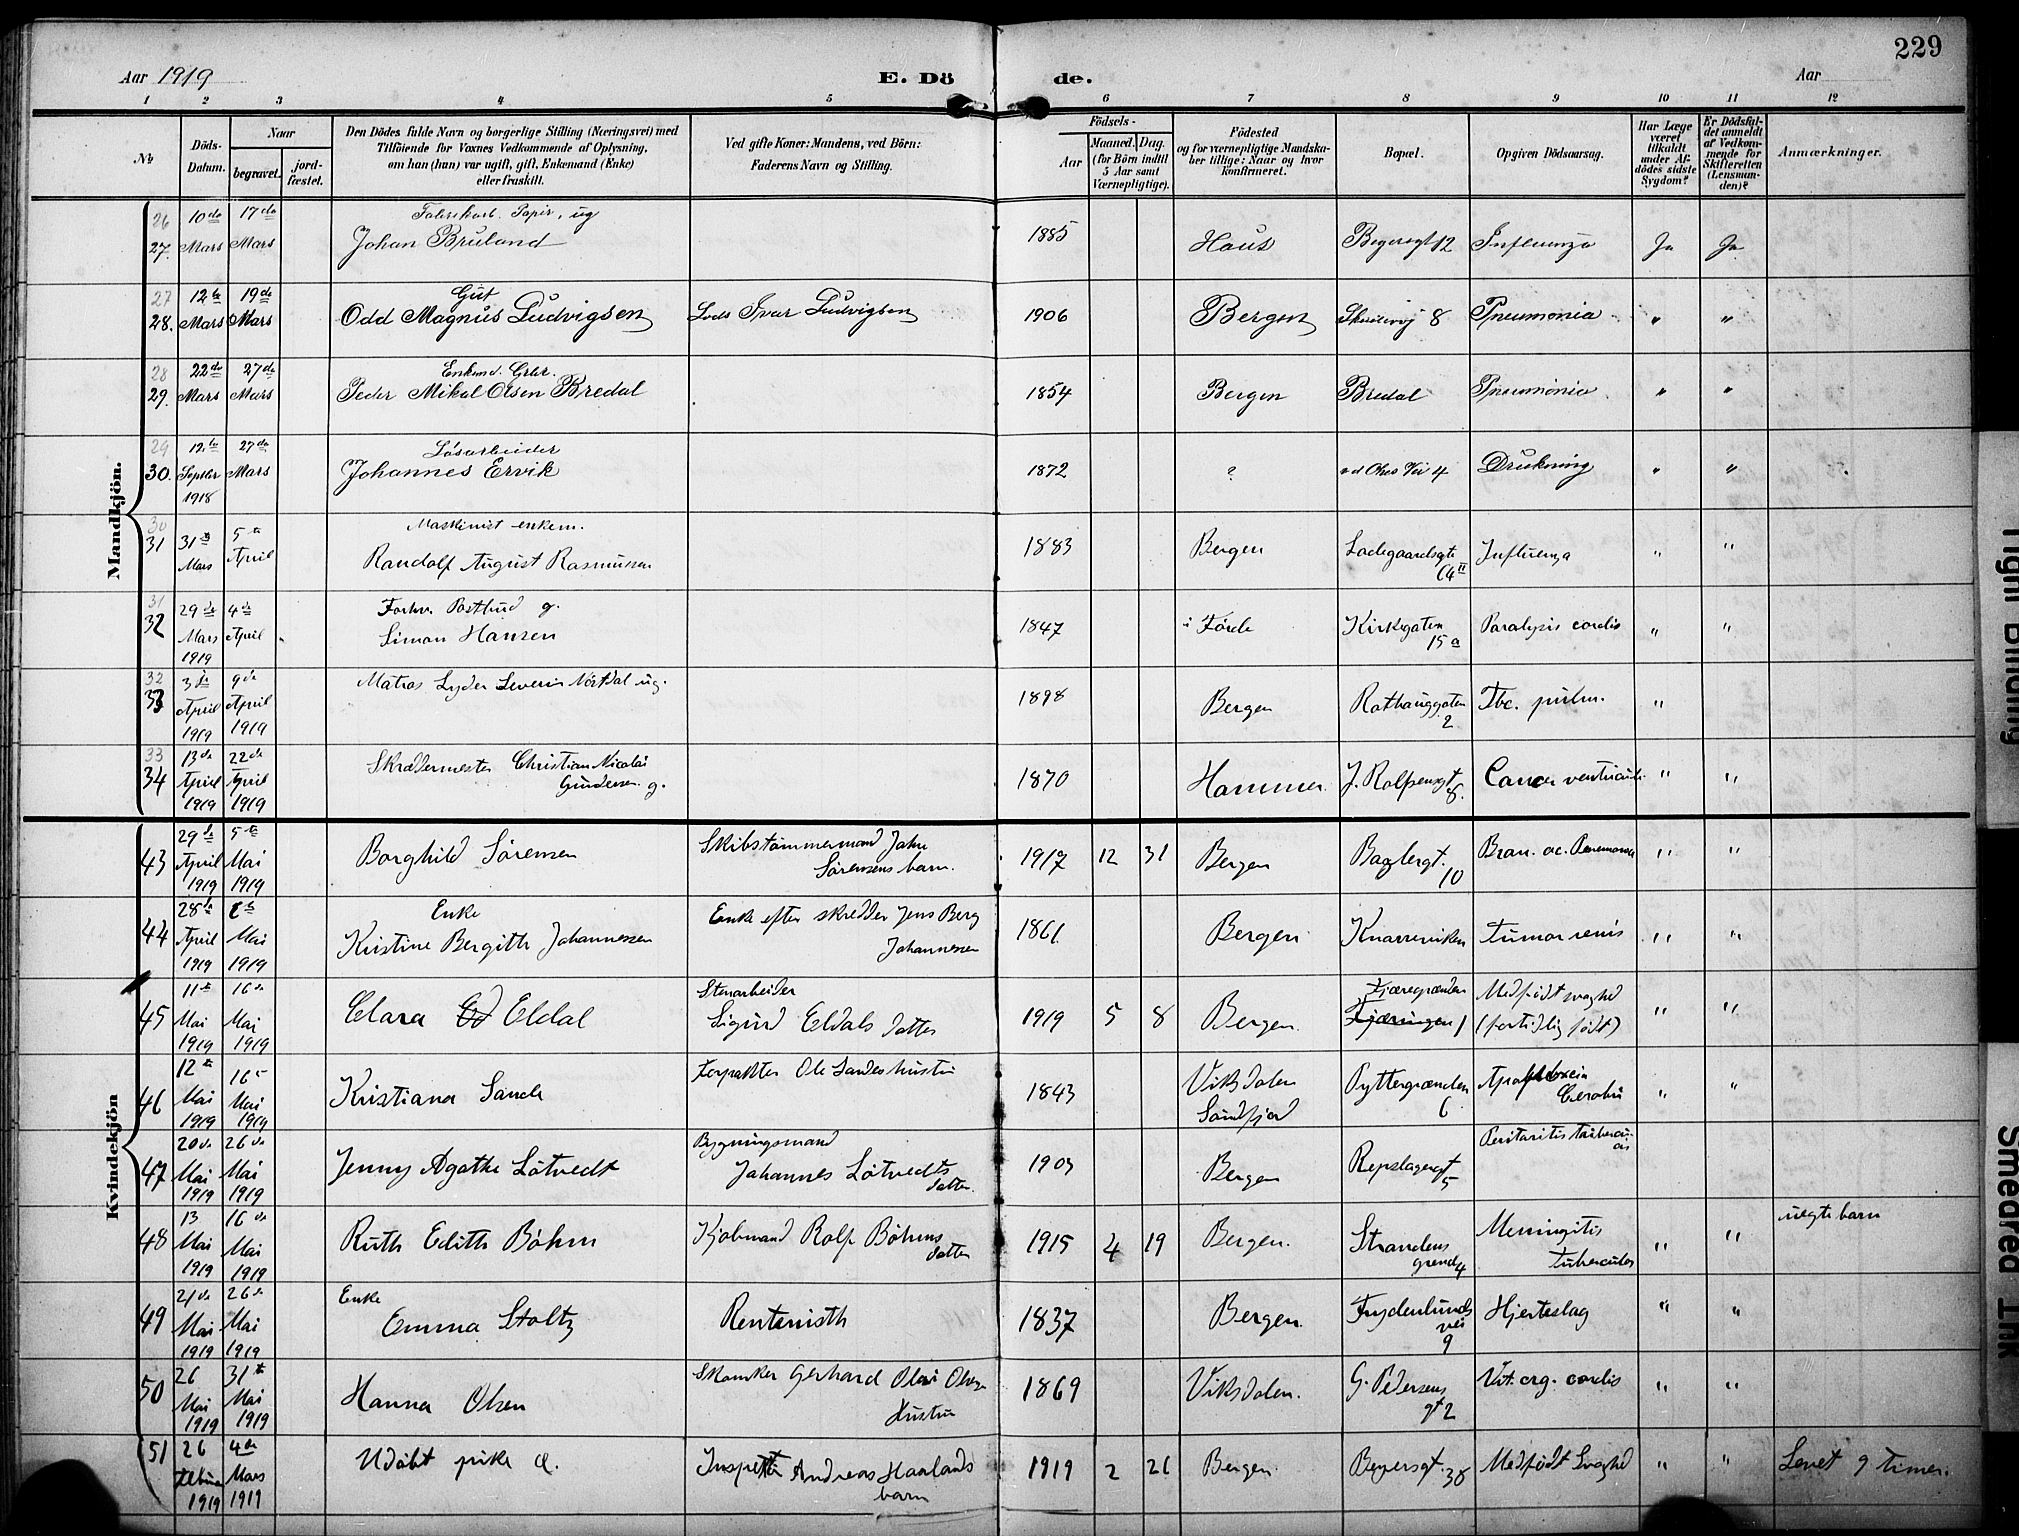 229
Aar 1919
E. Dö de.
Aar
1 2 3 4 5 6 7 8 9 10 11 12
No
Döds-Datum.
Naar
begravet.
jordfæstet.
Den Dödes fulde Navn og borgerlige Stilling (Næringsvei) med
Tilföiende for Voxnes Vedkommende af Oplysning,
om han (hun) var ugift, gift, Enkemand (Enke)
eller fraskilt.
Ved gifte Koner: Mandens, ved Börn:
Faderens Navn og Stilling.
Födsels-
Aar
Maaned. Dag.
(for Börn indtil
5 Aar samt
Værnepligtige).
Födested
og for værnepligtige Mandska-
ber tillige: Naar og hvor
konfirmeret.
Bopæl.
Opgiven Dödsaarsag.
Har Læge
været
tilkaldt
under Af-
dödes sidste
Sygdom?
Er Dödsfal-
det anmeldt
af Vedkom-
mende for
Skifteretten
(Lensman-
den)?
Anmærkninger.
Mandkjön.
26
27. 10de Mars 17de Mars
Fabrikarb. Papir, ug
Johan Bruland 1885 Haus 12 Influenza Ja Ja
27
28. 12te Mars 19de Mars
Gut
Odd Magnus Ludvigsen Lods Ivar Ludvigsen 1906 Bergen 8 Pneumonia " "
28
29. 22de Mars 27de Mars
Enkemd.
Peder Mikal Olsen Bredal 1854 Bergen Bredal Pneumonia " "
29
30. 12te Septbr 1918 27de Mars
Løsarbeider
Johannes Ervik 1872 ? 4 Drukning " "
30
31 31te Mars 5te April
Maskinist enkem.
Randolf August Rasmussen 1883 Bergen Ladegaardsgt 64 II Influenza " "
31
32 29de Mars 1919 4de April
Forhv. Postbud g.
Simon Hansen 1847 i Førde Kirkegaten 15a Paralysis cordis " "
32
33 3de April 1919 9de April 1919
Matros Lyder Severin Nordal ug. 1898 Bergen Rothauggaten 2 Tbc. pulm. "
33
34 13de April 1919 22de April 1919
Skreddermester Christian Nicolai
Gundersen g. 1870 Hammer. 8. Cancer ventriculi " "
Kvindekjön
43 29de April 1919 5te Mai 1919
Borghild Sørensen Skibstømmermand Johs
Sørensens barn. 1917 12 31 Bergen Baglergt. 10 " "
44 28de April 1919 Mai 1919
Enke
Kristine Bergith Johannessen Enke efter skredder Jens Berg
Johannessen 1861. Bergen Knarreviken Tumor renis " "
45 11te Mai 1919 16de Mai 1919
Clara Eldal Stenarbeider
Sigurd Eldals datter 1919 5 8 Bergen. Fjæregrænden 1 Medfødt svaghed
(fortidlig født) " "
46 12te Mai 1919 16 Mai 1919
Kristiana Sande Forpakter Ole Sandes hustru 1843 Viksdalen
Søndfjord Pyttergrænden 6 Apoplexia
Cerebri " "
47 20de Mai 1919 26de Mai 1919
Jenny Agathe Løtvedt Bygningsmand
Johannes Løtvedts
datter. 1903 Bergen Repslagergt 5 Peritonitis
48 13 Mai 1919 16de Mai 1919
Ruth Edith Bøhm Kjøbmand Rolf Bøhms
datter 1915 4 19 Bergen. Strandens
grend 4 Meningitis
tuberculos " " uegte barn
49 21de Mai 1919 26de Mai 1919
Enke
Emma Stoltz Rentenisth 1837 Bergen. Frydenlunds
vei
9 Hjerteslag " "
50 26 Mai 1919 31te Mai 1919
Hanna Olsen Gerhard Olai Olsen
Hustru 1869 Viksdalen. G. Pedersens
gt 2 Vit. org. cordis " "
51 26 1919 4de Mars 1919
Udøbt pike æ. Inspektør Andreas Haalands
barn 1919 2 26 Bergen Beyersgt. 38 Medfødt Svaghed " " Levet 9 timer.
Tight Binding
Smeared Ink